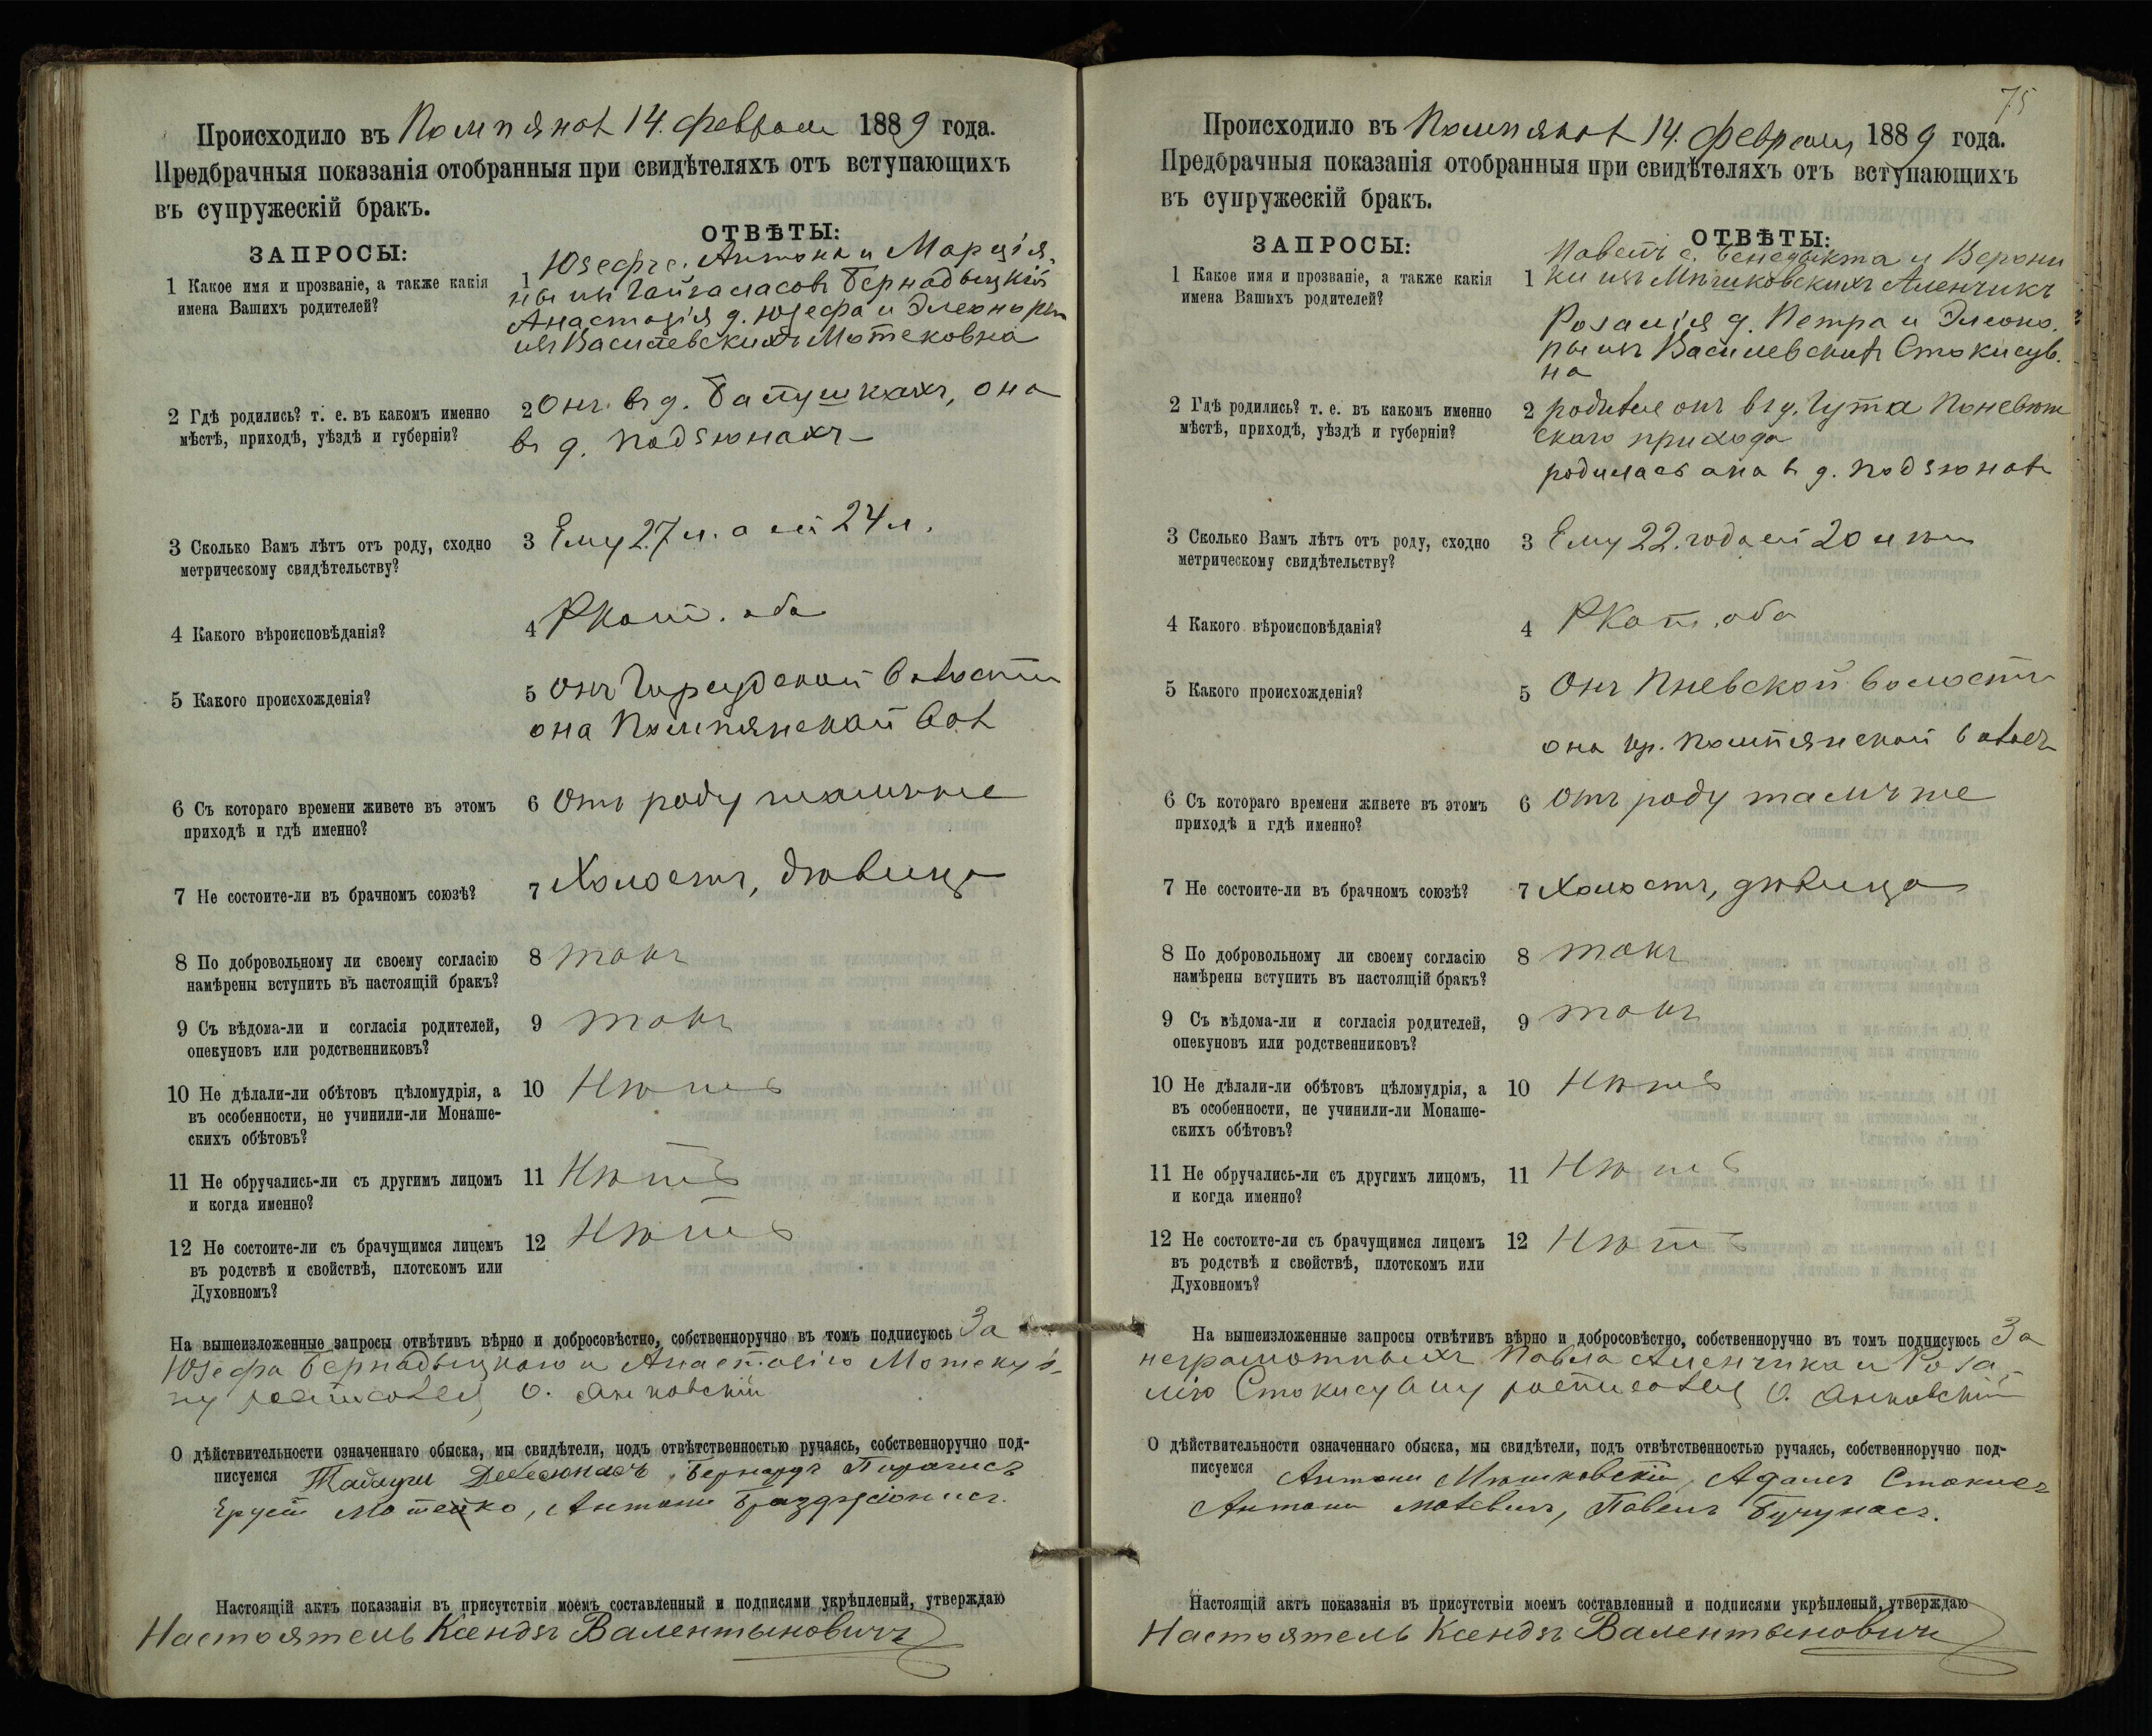 Происходило въ Помпянах 14. февраля 1889 года.
Предбрачныя показанія отобранныя при свидѣтеляхъ отъ вступающихъ
въ супружескій бракъ.
ЗАПРОСЫ:
ОТВѢТЫ:
1 Какое имя и прозваніе, а также какія
имена Вашихъ родителей?
1 Юзефъ с. Антона и Марція-
ны изъ Бернадыцкій
Анастазія д. Юзефа и Элеоноры
изъ Василевскихъ Мотековна
2 Гдѣ родились? т. е. въ какомъ именно
мѣстѣ, приходѣ, уѣздѣ и губерніи?
2 Онъ въ д. Багушкахъ, она
въ д. Подзюнахъ
3 Сколько Вамъ лѣтъ отъ роду, сходно
метрическому свидѣтельству?
3 Ему 27 л. а ей 24 л.
4 Какого вѣроисповѣданія?
4 РКат. оба
5 Какого происхожденія?
5 Онъ волости
она Помпянской вол
6 Съ котораго времени живете въ этомъ
приходѣ и гдѣ именно?
6 Отъ роду тамъ же
7 Не состоите-ли въ брачномъ союзѣ?
7 Холостъ, дѣвица
8 По добровольному ли своему согласію
намѣрены вступить въ настоящій бракъ?
8 такъ
9 Съ вѣдома-ли и согласія родителей,
опекуновъ или родственниковъ?
9 такъ
10 Не дѣлали-ли обѣтовъ цѣломудрія, а
въ особенности, не учинили-ли Монаше-
скихъ обѣтовъ?
10 Нѣтъ
11 Не обручались-ли съ другимъ лицомъ
и когда именно?
11 Нѣтъ
12 Не состоите-ли съ брачущимся лицемъ
въ родствѣ и свойствѣ, плотскомъ или
Духовномъ?
12 Нѣтъ
На вышеизложенные запросы отвѣтивъ вѣрно и добросовѣстно, собственноручно въ томъ подписуюсь За
Юзефа Бернадыцкаго и Анастазію Мотеков-
ну росписался О. Янковскій
О дѣйствительности означеннаго обыска, мы свидѣтели, подъ отвѣтственностью ручаясь, собственноручно под-
писуемся Тадеуш Бернардъ
Мотейко, Антони
Настоящій актъ показанія въ присутствіи моемъ составленный и подписями укрѣпленый, утверждаю
Настоятель Ксендзъ Валентыновичъ
75
Происходило въ Помпянах 14. февраля 1889 года.
Предбрачныя показанія отобранныя при свидѣтеляхъ отъ вступающихъ
въ супружескій бракъ.
ЗАПРОСЫ:
ОТВѢТЫ:
1 Какое имя и прозваніе, а также какія
имена Вашихъ родителей?
Павелъ с. Бенедыкта и Верони
1 ки изъ Мѣшковскихъ Аленчикъ
Розалія д. Петра и Элеоно.
ры изъ Василевских Стокисув.
на
2 Гдѣ родились? т. е. въ какомъ именно
мѣстѣ, приходѣ, уѣздѣ и губерніи?
2 родился онъ въ д. Гута Поневѣж
скаго прихода
родилась она в д. Подзюнах
3 Сколько Вамъ лѣтъ отъ роду, сходно
метрическому свидѣтельству?
3 Ему 22. года ей 20 лѣтъ
4 Какого вѣроисповѣданія?
4 РКат. оба
5 Какого происхожденія?
5 Онъ Пневской волости
она кр. Помпянской волости
6 Съ котораго времени живете въ этомъ
приходѣ и гдѣ именно?
6 Отъ роду тамъ же
7 Не состоите-ли въ брачномъ союзѣ?
7 Холостъ, дѣвица
8 По добровольному ли своему согласію
намѣрены вступить въ настоящій бракъ?
8 такъ
9 Съ вѣдома-ли и согласія родителей,
опекуновъ или родственниковъ?
9 такъ
10 Не дѣлали-ли обѣтовъ цѣломудрія, а
въ особенности, не учинили-ли Монаше-
скихъ обѣтовъ?
10 Нѣтъ
11 Не обручались-ли съ другимъ лицомъ,
и когда именно?
11 Нѣтъ
12 Не состоите-ли съ брачущимся лицемъ
въ родствѣ и свойствѣ, плотскомъ или
Духовномъ?
12 Нѣтъ
На вышеизложенные запросы отвѣтивъ вѣрно и добросовѣстно, собственноручно въ томъ подписуюсь За
неграмотныхъ Павла Аленчика и Роза-
лію Стокисувну росписался О. Янковскій
О дѣйствительности означеннаго обыска, мы свидѣтели, подъ отвѣтственностью ручаясь, собственноручно под-
писуемся Антони Мѣшковскій, Адамъ Стокисъ
Антони Павелъ Бучунасъ.
Настоящій актъ показанія въ присутствіи моемъ составленный и подписями укрѣпленый, утверждаю
Настоятель Ксендзъ Валентыновичъ